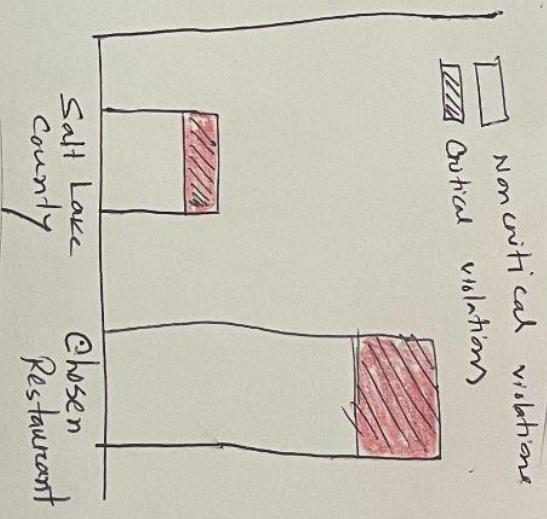 Noncritical violations
Critical violations
Salt Lake
County
Chosen
Restaurant